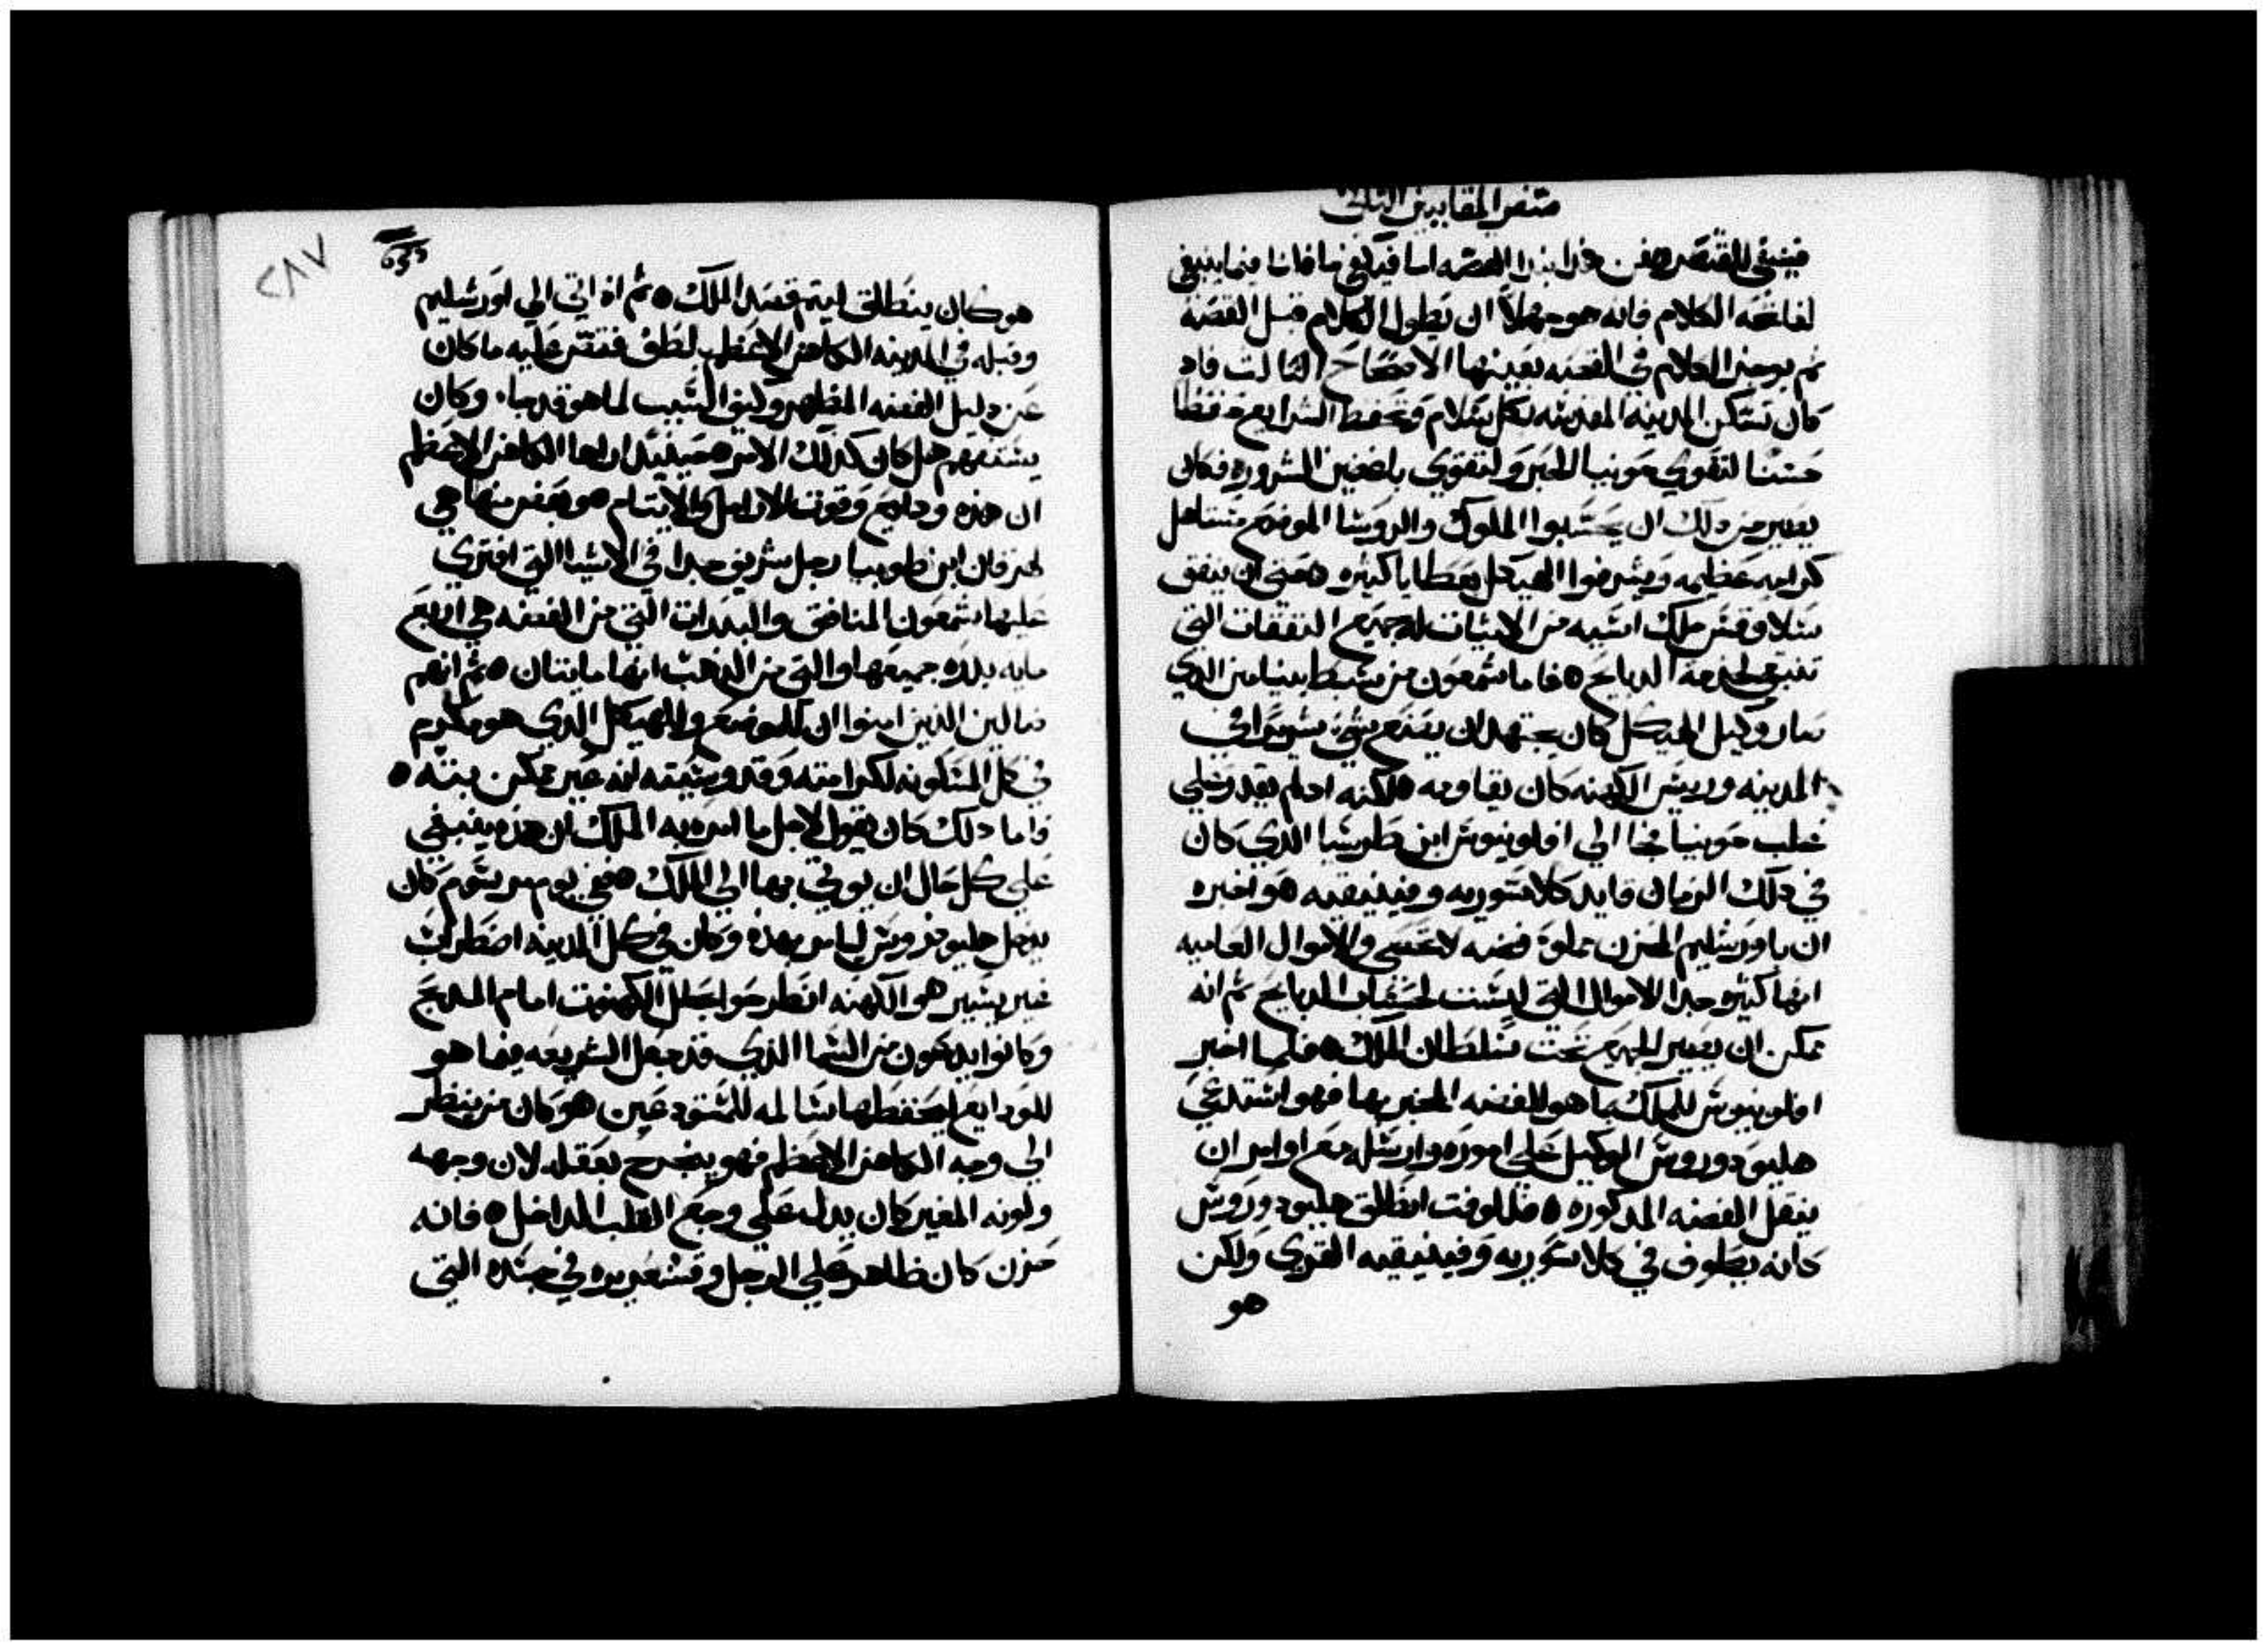 سفر المقابيين الثاني
فينبغي للمقتصر فمن هذا ابتدا القصه اما فيكفي ما قلنا فيما ينبغي
لفاتحه الكلام فانه هو جهلاً ان يطول الكلام قبل القصه
ثم يوجز الكلام في القصه بعينها الاصحاح الثالث فاد
كان تسكن المدينه المقدسه بكل سلام وتحفظ الشرايع حفظا
حسنا لتقوي حونيا الحبر ولتقوي باغضين الشروره فكان
يصير من دلك ان يحسبوا الملوك والروسا الموضع مستاهل
كرامه عظيمه ويشرفوا الهيكل بعطايا كثيره حتي ان ينفق
سلاوقس ملك اسيه من الاثيات له جميع النفقات التي
تنبغي لخدمة الدبايح فاما شمعون من سبط بنيامين الدي
صار وكيل الهيكل كان يجتهد ان يصنع شي شويرا في
المدينه وريس الكهنه كان يقاومه ولكنه ادلم يقدر علي
غلب حونيا مخا الي افلونيوس ابن طرسيا الدي كان
في دلك الزمان قايد كلاسوريه وفينيقيه هو اخبره
ان باورشليم الخزن مملوة فضه لا تحصي والاموال العاميه
انها كثيره جدا الاموال التي ليست لحساب الدبايح ثم انه
ممكن ان يصير الجميع تحت سلطان الملك فلما اخبر
افلونيوس للملك بما هو للفضه المخبر بها فهو استدعي
هليودوروس الوكيل علي اموره وارسله مع اوامر ان
ينقل الفضه المدكوره فللوقت انطلق هليودوروس
كانه يطوف في كلاسوريه وفينيقيه القري ولكن
هو
٢٨٧
هو كان ينطلق ليتم قصد الملك ثم اد اتي الي اورشليم
وقبله في المدينه الكاهن الاعظم لطف فتقر عليه ما كان
عن دليل الفضه المظهر وكيف السبب لما هو قد جاء وكان
يستفهم هل كان كدلك الامر حينيد اراها الكاهن الاعظم
ان هذه ودايع وقوت الارامل والايتام هو بعض منها هي
لحرقان ابن طوبيا رجل شريف جدا في الاشيا التي افتري
عليها شمعون المنافق والبدرات التي من الفضه هي اربع
مايه بدره جميعها والتي من الذهب انها مايتان ثم انهم
ضالين الذين امنوا ان للموضع والهيكل الدي هو مكرم
في كل المسكونه لكرامته وقدوسيته انه غير ممكن بته
فاما دلك كان يقول لاجل ما امره به الملك ان هذه ينبغي
علي كل حال ان يوتي بها الي الملك ففي يوم مرسوم كان
يدخل هليودوروس ليامر بهذه وكان في كل المدينه اضطراب
غير يسير هو الكهنه انطرحوا بحلل الكهنوت امام المدبح
وكانوا يدعون من السما الذي قد جعل الشريعه فيما هو
للودايع ليحفظها سالمه للمستودعين هو كان من ينظر
الي وجه الكاهن الاعظم فهو ينجرح بعقله لان وجهه
ولونه المغير كان يدل علي وجع القلب الداخل فانه
حزن كان ظاهر علي الرجل وقشعريره في جسده التي